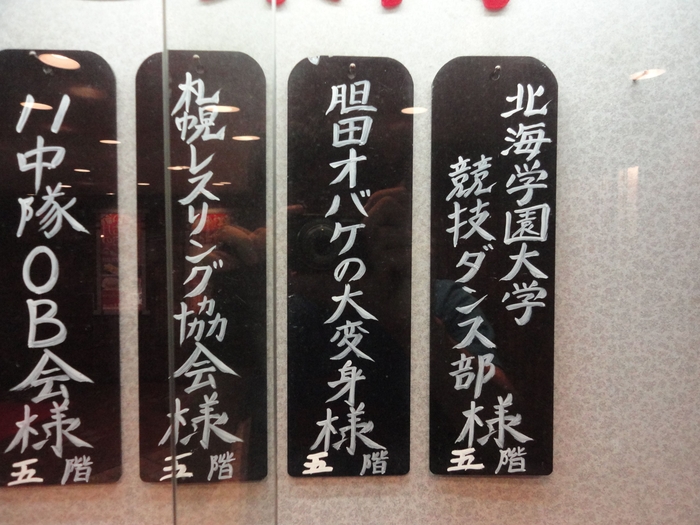 北海学園大学
競技ダンス部様
五階
胆田オバケの大変身様
五階
札幌レスリング協会様
三階
11中隊OB会様
五階